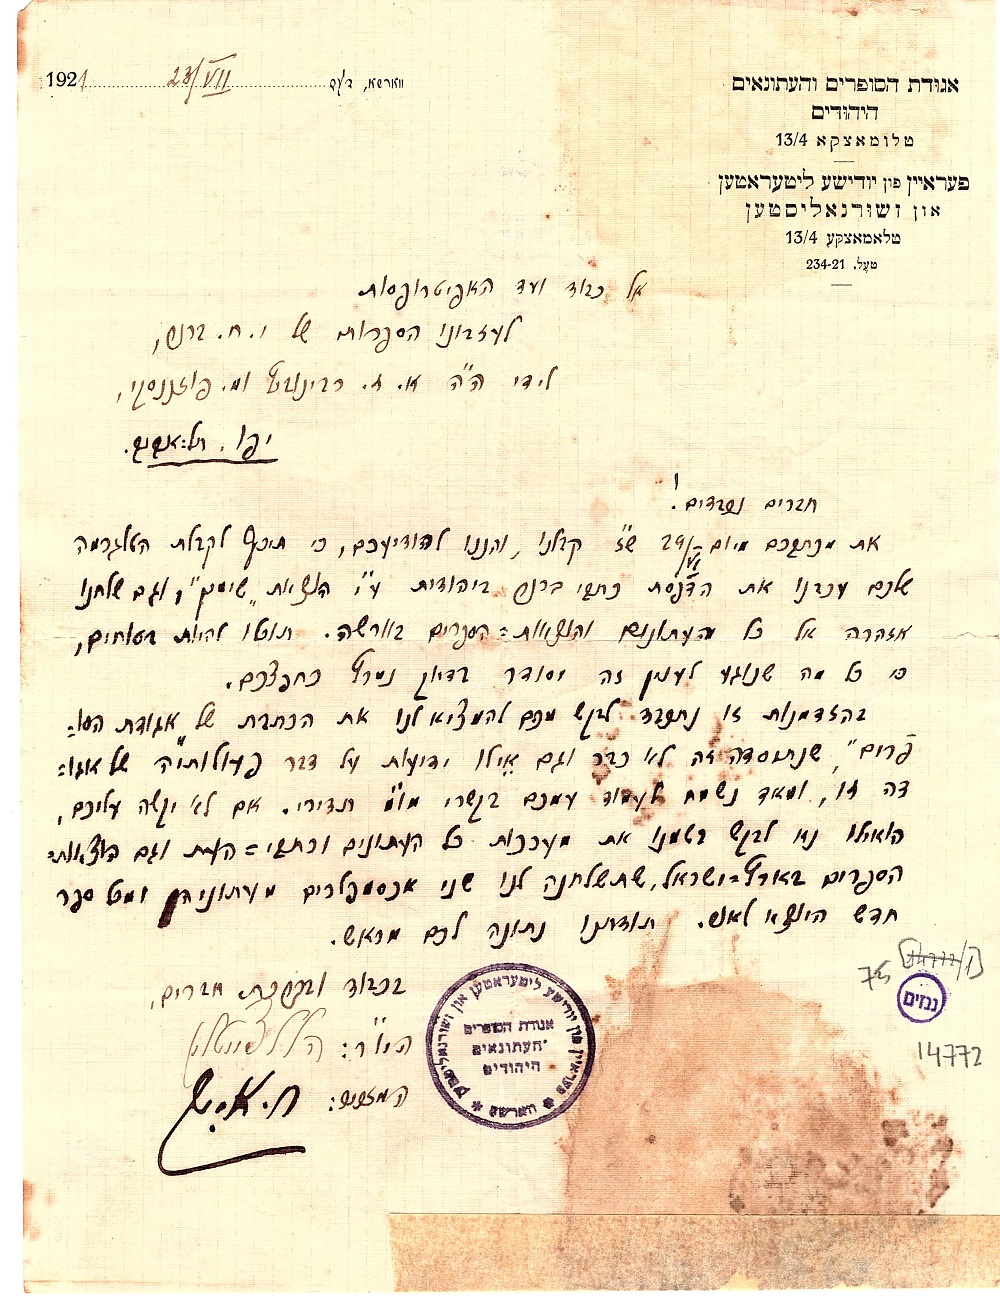 אגודת הסופרים והעתונאים
היהודים
טלומאצקא 13/4
פעראיין פון יודישע ליטעראטען
און זשורנאליסטען
טלאמאצקע 13/4
טעל. 234-21
ווארשא, ד'/ט 23/VII 1921
אל כבוד ועד האפיטרופסות
לעזבונו הספרותי של י. ח. ברנר,
לידי ה"ה א. ז. רבינוביץ ומ. פוזננסקי,
יפו. תל-אביב.
חברים נכבדים!
את מכתבכם מיום 29/VI ש"ז קבלנו, והננו להודיעכם, כי תיכף לקבלת הטלגרמה
שלכם עכבנו את הדפסת כתבי ברנר ביהודית ע"י הוצאת "שימין", וגם שלחנו
אזהרה אל כל העתונים והוצאות-הספרים בוורשה. תוכלו להיות בטוחים,
כי כל מה שנוגע לענין זה יסודר בדיוק נמרץ כחפצכם.
בהזדמנות זו נתכבד לבקש מכם להמציא לנו את הכתבת של "אגודת הסו-
פרים", שנתיסדה זה לא כבר וגם אילו ידיעות על דבר פעולותיה של אגו-
דה זו, ומאד נשמח לעמוד עמכם בקשרי מו"מ תדירי. אם לא יקשה עליכם,
הואילו נא לבקש בשמנו את מערכות כל העתונים וכתבי-העת וגם הוצאות-
הספרים בארץ-ישראל, שתשלחנה לנו שני אכסמפלרים מעתוניהן ומכל ספר
חדש היוצא לאור. תודתנו נתונה לכם מראש.
בכבוד ובברכת חברים,
היו"ר: הלל צייטלין
המזכיר:
פעראיין פון יודישע ליטעראטען און זשורנאליסטען
ווארשא
אגודת הסופרים
והעתונאים
היהודים
75
גנזים
14772